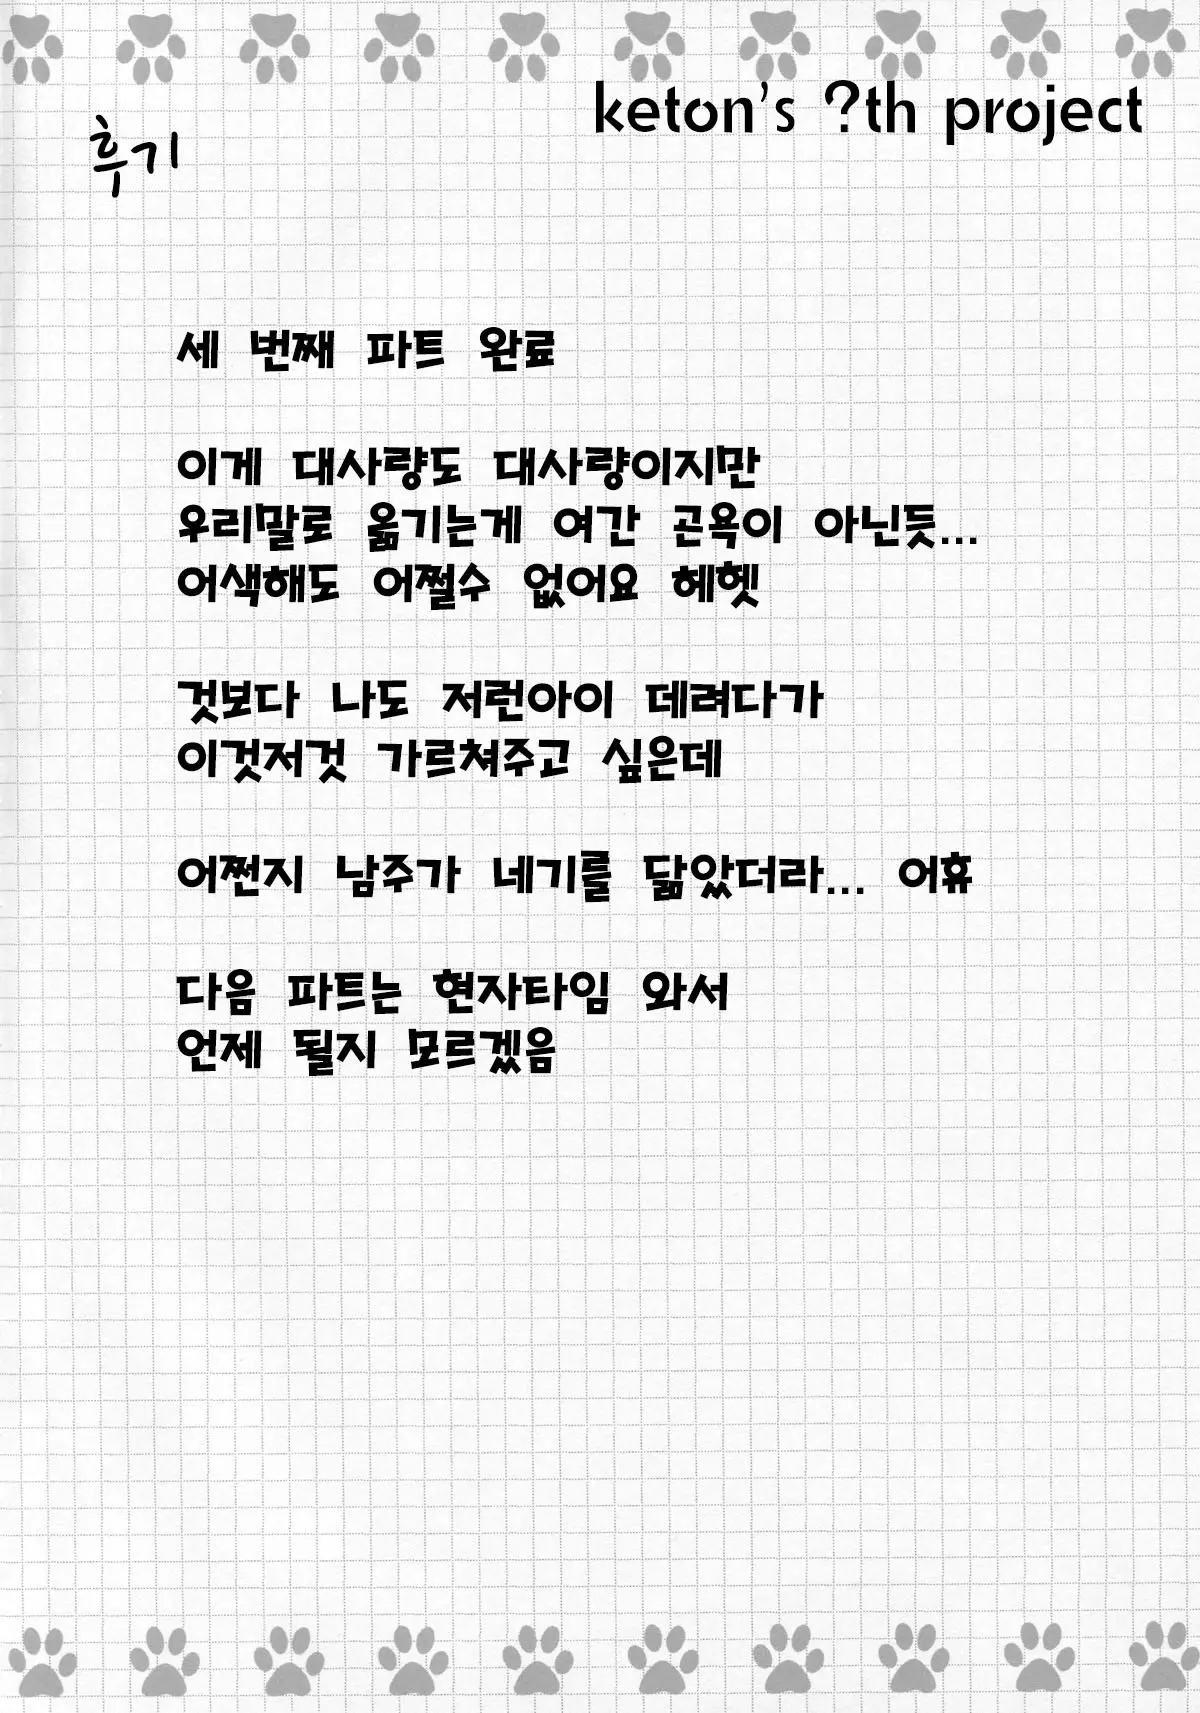 keton's ?th project
후기
세 번째 파트 완료
이게 대사량도 대사량이지만
우리말로 옮기는게 여간 곤욕이 아닌듯...
어색해도 어쩔수 없어요 헤헷
것보다 나도 저런아이 데려다가
이것저것 가르쳐주고 싶은데
어쩐지 남주가 네기를 닮았더라... 어휴
다음 파트는 현자타임 와서
언제 될지 모르겠음